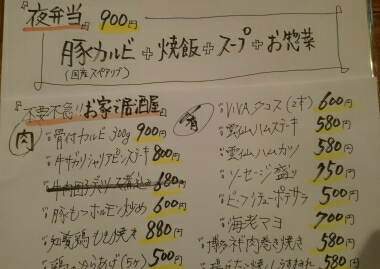 『夜弁当 900円』
豚カルビ + 焼飯 + スープ + お惣菜
(国産スペアリブ)
『不要不急!! お家で居酒屋』
肉
骨付カルビ 300g 900円
牛サガリシャリアピンステーキ 800円
680円
豚もつホルモン炒め 600円
知覧鶏もも焼き 880円
鶏のからあげ(5ヶ) 500円
VIVAタコス(2P) 600円
雲仙ハムステーキ 580円
雲仙ハムカツ 580円
ソーセージ盛り 750円
ビーフシチューポテサラ 500円
海老マヨ 700円
博多 肉巻き焼き 580円
580円